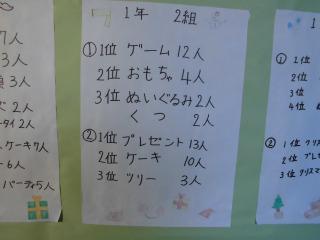 7人
3人
3人
2人
タイ 2人
ケーキ7人
ー6人
パーティ5人
1年 2組
①1位 ゲーム 12人
2位 おもちゃ 4人
3位 ぬいぐるみ 2人
くつ 2人
②1位 プレゼント 13人
2位 ケーキ 10人
3位 ツリー 3人
1
① 1位
2位
3位
4位
② 1位 クリ
2位 プレ
3位 クリスマ